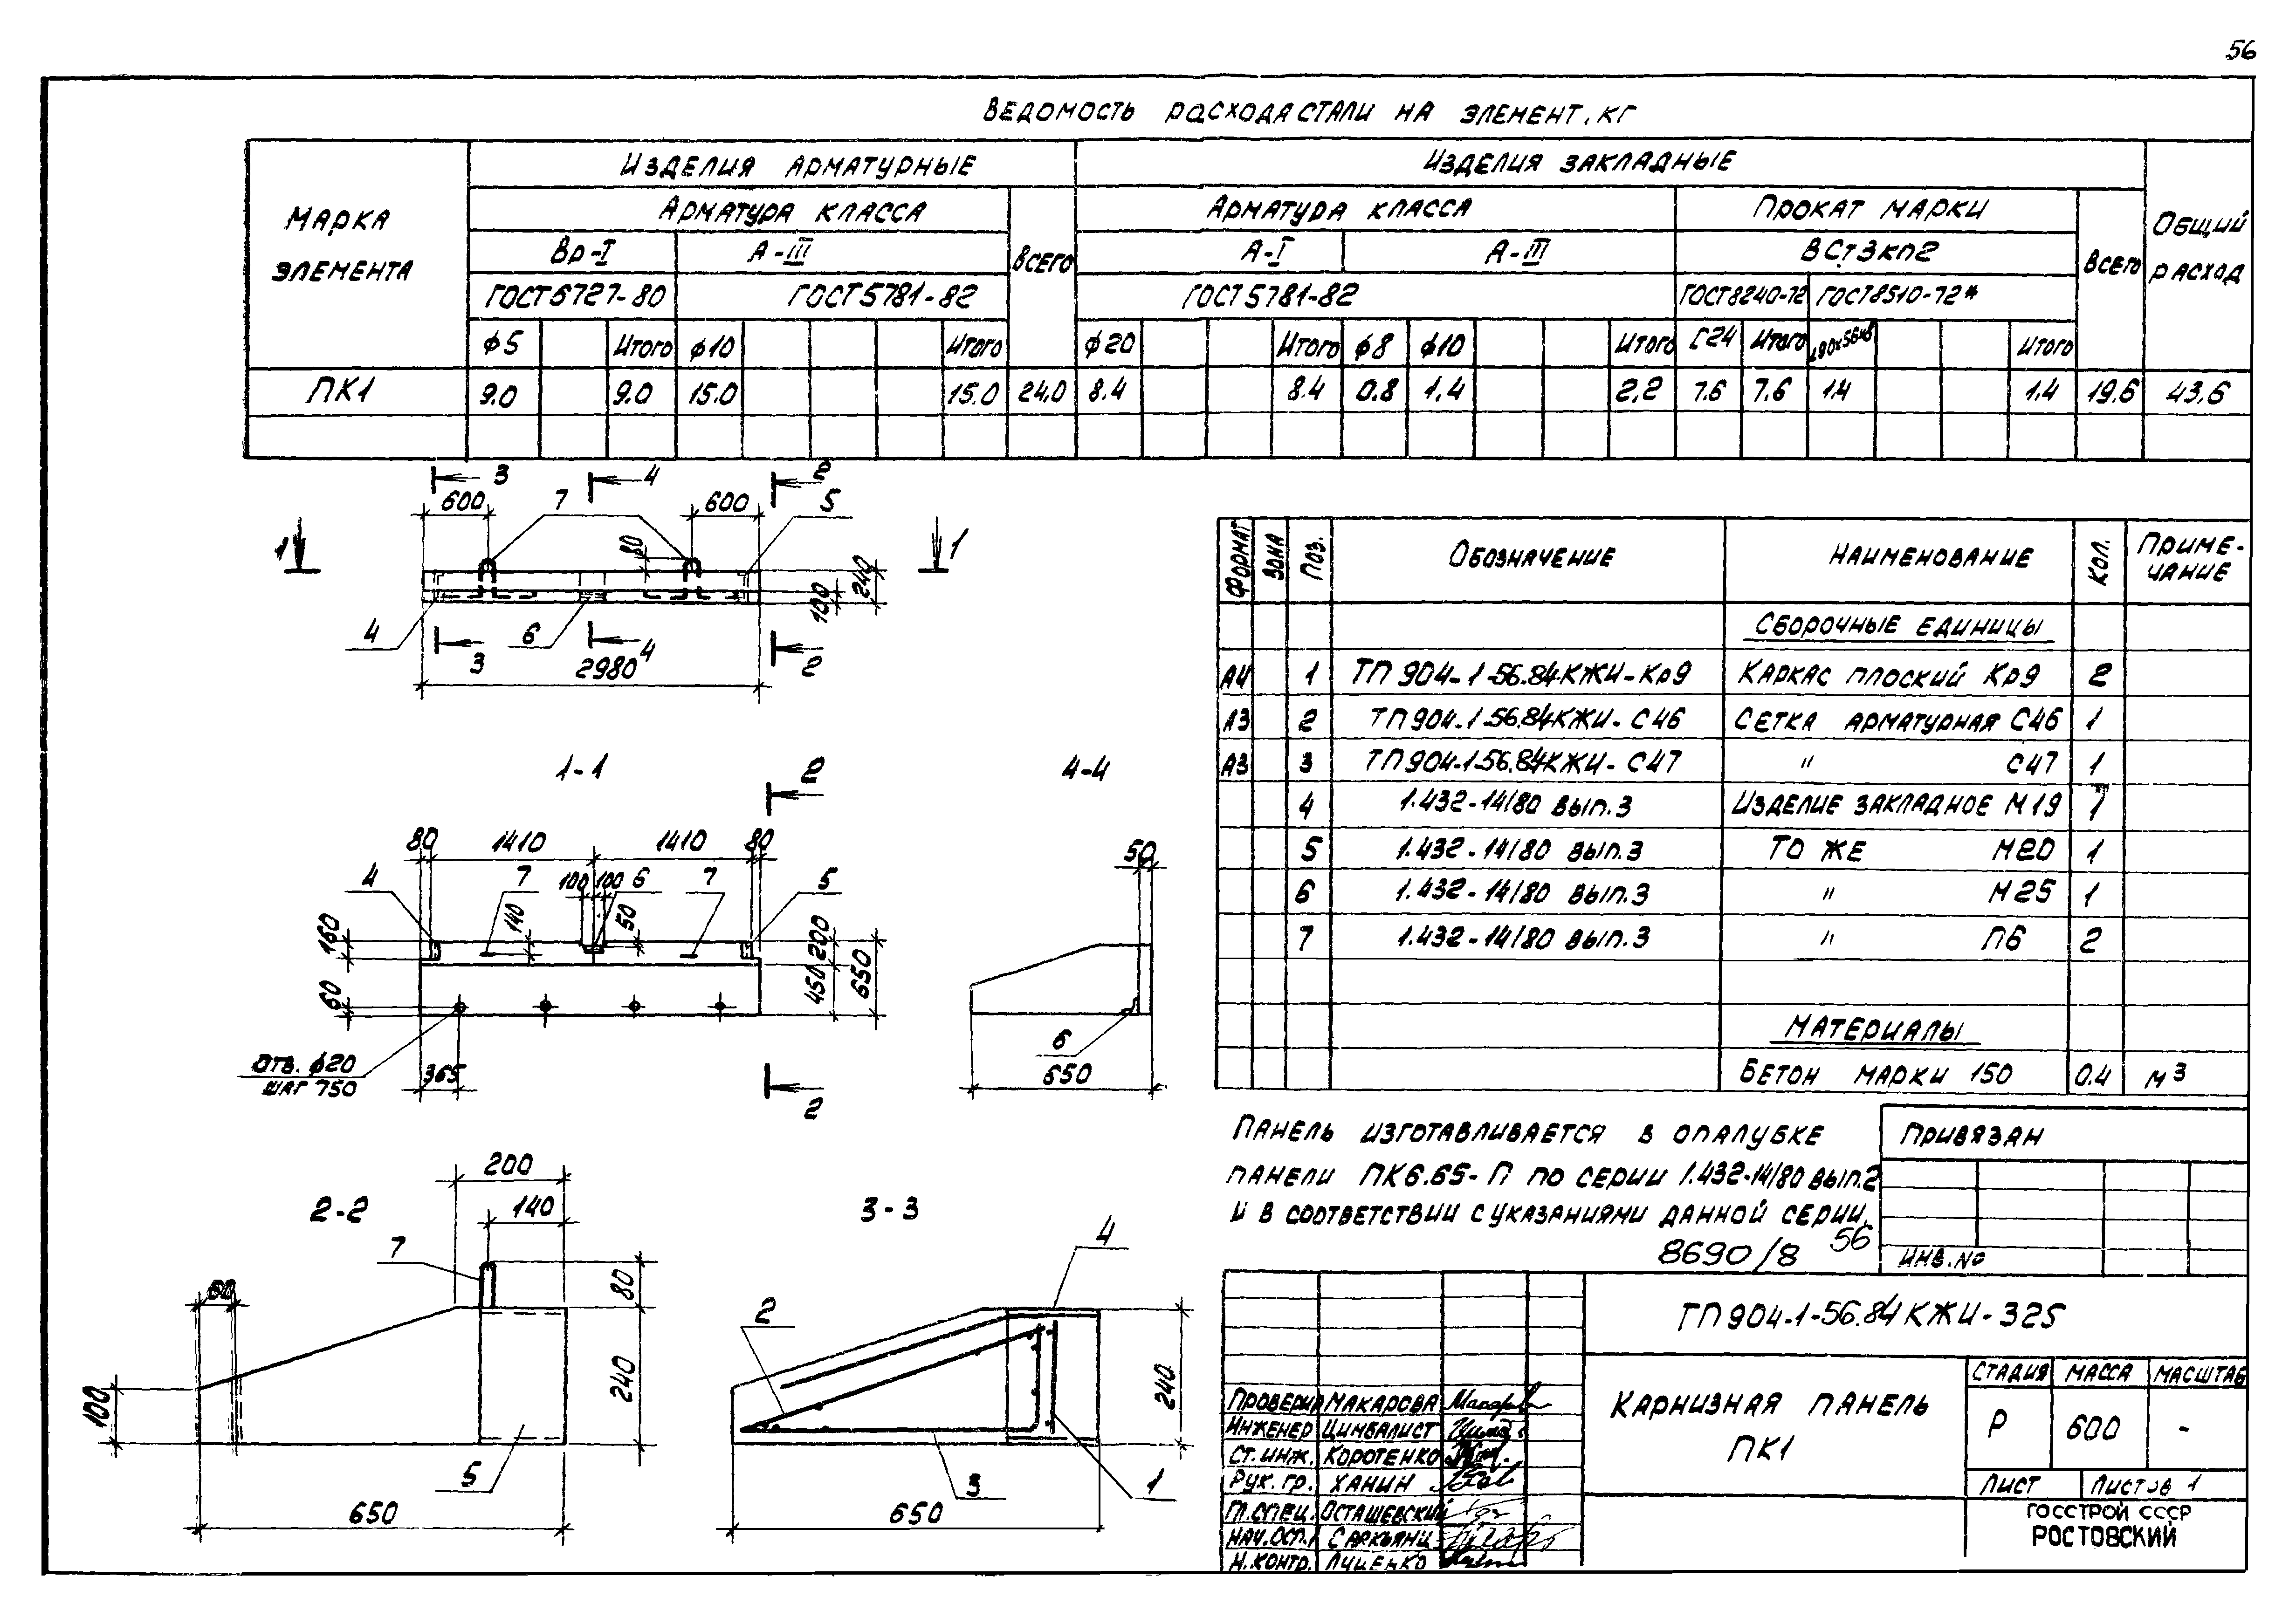 56
Ведомость расхода стали на элемент, кг
Марка элемента
Изделия арматурные
Изделия закладные
Общий расход
Арматура класса
Всего
Арматура класса
Прокат марки
Всего
Вр-I
А-III
А-I
А-III
ВСт3кп2
ГОСТ 6727-80
ГОСТ 5781-82
ГОСТ 5781-82
ГОСТ 8240-72
ГОСТ 8510-72*
ф5 Итого ф10 Итого ф20 Итого ф8 ф10 Итого [24 Итого L90x56x8 Итого
ПК1 9.0 9.0 15.0 15.0 24,0 8.4 8.4 0.8 1.4 2,2 7.6 7.6 1.4 1.4 19.6 43,6
3 4 2
600 7 600 5
1 80 1
240
100
4 6
3 4 2
2980
1-1 2 4-4
80 1410 1410 80 50
4 7 100 100 6 7 5
140 50
160 200 650
60 450
6
Отв. ф20
шаг 750
365 650
2
200
2-2 140 3-3
7 4
60 80
2
100 240 240
5 3 1
650 650
Формат Зона Поз. Обозначение Наименование Кол. Примечание
Сборочные единицы
А4 1 ТП 904-1-56.84 КЖИ-Кр9 Каркас плоский Кр9 2
А3 2 ТП 904-1-56.84 КЖИ-С46 Сетка арматурная С46 1
А3 3 ТП 904-1-56.84 КЖИ-С47 " С47 1
4 1.432-14/80 вып.3 Изделие закладное М19 1
5 1.432-14/80 вып.3 То же М20 1
6 1.432-14/80 вып.3 " М25 1
7 1.432-14/80 вып.3 " П6 2
Материалы
Бетон марки 150 0.4 м3
Панель изготавливается в опалубке
панели ПК6.65-П по серии 1.432-14/80 вып.2
и в соответствии с указаниями данной серии.
8690/8 56
Привязан
Инв. No
ТП 904-1-56.84 КЖИ-325
Карнизная панель
ПК1
Стадия Масса Масштаб
Р 600 -
Лист Листов 1
ГОССТРОЙ СССР
РОСТОВСКИЙ
Проверил Макарова
Инженер Цимбалист
Ст. инж. Коротенко
Рук. гр. Ханин
Гл. спец. Осташевский
Саркьянц
Н. контр. Луценко